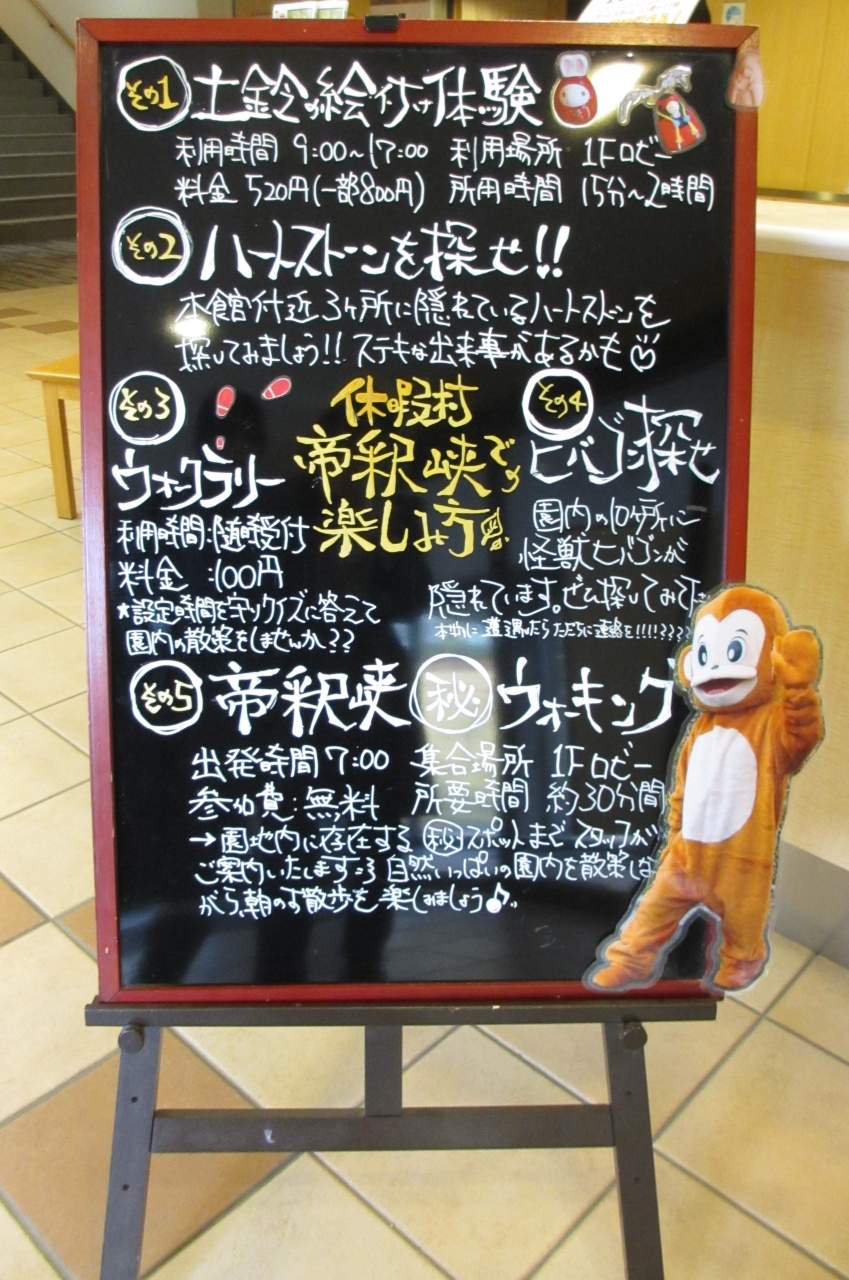 その1 土鈴の絵付け体験
利用時間 9:00〜17:00 利用場所 1Fロビー
料金 520円(一部800円) 所用時間 15分〜2時間
その2 ハートストーンを探せ!!
本館付近3ヶ所に隠れているハートストーンを
探してみましょう!! ステキな出来事があるかも♡
休暇村
帝釈峡での
楽しみ方
その3
ウォークラリー
利用時間:随時受付
料金 :100円
*設定時間を守りクイズに答えて
園内の散策をしませんか??
その4
ヒバゴン探せ
園内の10ヶ所に
怪獣ヒバゴンが
隠れています。ぜひ探してみて下
本物に遭遇したらただちに連絡を!!!!????
その5 帝釈峡㊙ウォーキング
出発時間 7:00 集合場所 1Fロビー
参加費:無料 所要時間 約30分間
→園地内に存在する㊙スポットまでスタッフが
ご案内いたします=3 自然いっぱいの園内を散策しな
がら、朝のお散歩を楽しみましょう♪